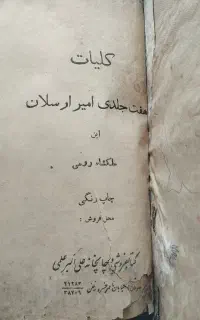 کلیات
هفت جلدی امیر ارسلان
ابن
ملکشاه رومی
چاپ رنگی
محل فروش :
کتابفروشی و چاپخانه علی اکبر علمی